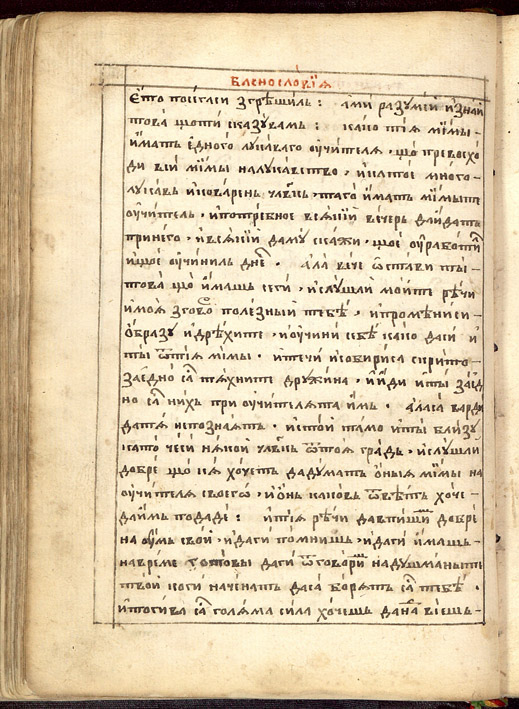 Баснословїѧ
Е҆то посѣгаси згрѣшилъ : а҆ми разꙋмѣй и҆знай
това̀ щоти сказꙋвамъ : како тїѧ ми́мы
и҆матъ є҆дного лꙋкаваго ѹ҆чителѧ , що прево
ди ми́мы на лꙋкавство , и҆ є҆ мно́го
лꙋкавъ и҆коваренъ члв҃къ , того и҆матъ ми́мытѣ
ѹ҆чителъ , и҆потребное всѧкїй вечеръ да и҆датъ
принего , и҆всѧкїй дамꙋ скажи , що є҆ ѹ҆работи́лъ
и҆що є҆ ѹ҆чинилъ дне́с . а҆ла вече ѡ҆стави ты
това̀ що и҆машъ сеги , и҆слꙋшай моитѣ рѣчи
и҆моѧ зговоръ поле́зный тебѣ , и҆промѣниси
ѻ҆бразꙋ и҆дрехитѣ , и҆ѹ҆чини себѣ како даси и҆
ты ѿтїѧ ми́мы . и҆течи и҆собириса скрито
заедно са тѧхнитѣ дрꙋжина , и҆иди и҆ты заед
но са нихъ при ѹ҆чителѧтъ и҆мъ . а҆ласа варди
датѧ непознаѧтъ . и҆стой тамо и҆ты близꙋ
като чеси нѧкой члв҃къ ѿтоѧ градъ , и҆слꙋшай
добре що сѧ хочетъ дадꙋматъ ѻ҆ныѧ ми́мы на
ѹ҆чителѧ своегѡ , и҆ѻ҆нъ каковъ ѿвѣтъ хоче
даимъ подаде : и҆тїѧ рѣчи да впишишъ добре
на ѹ҆мъ свой , и҆даги помнишъ , и҆даги и҆машъ
на време готовы даги ѿговориш на дꙋшманытѣ
твои коги наченатъ даса борѧтъ са тебѣ .
и҆тогива са голѧма сила хочешъ дана вїешъ